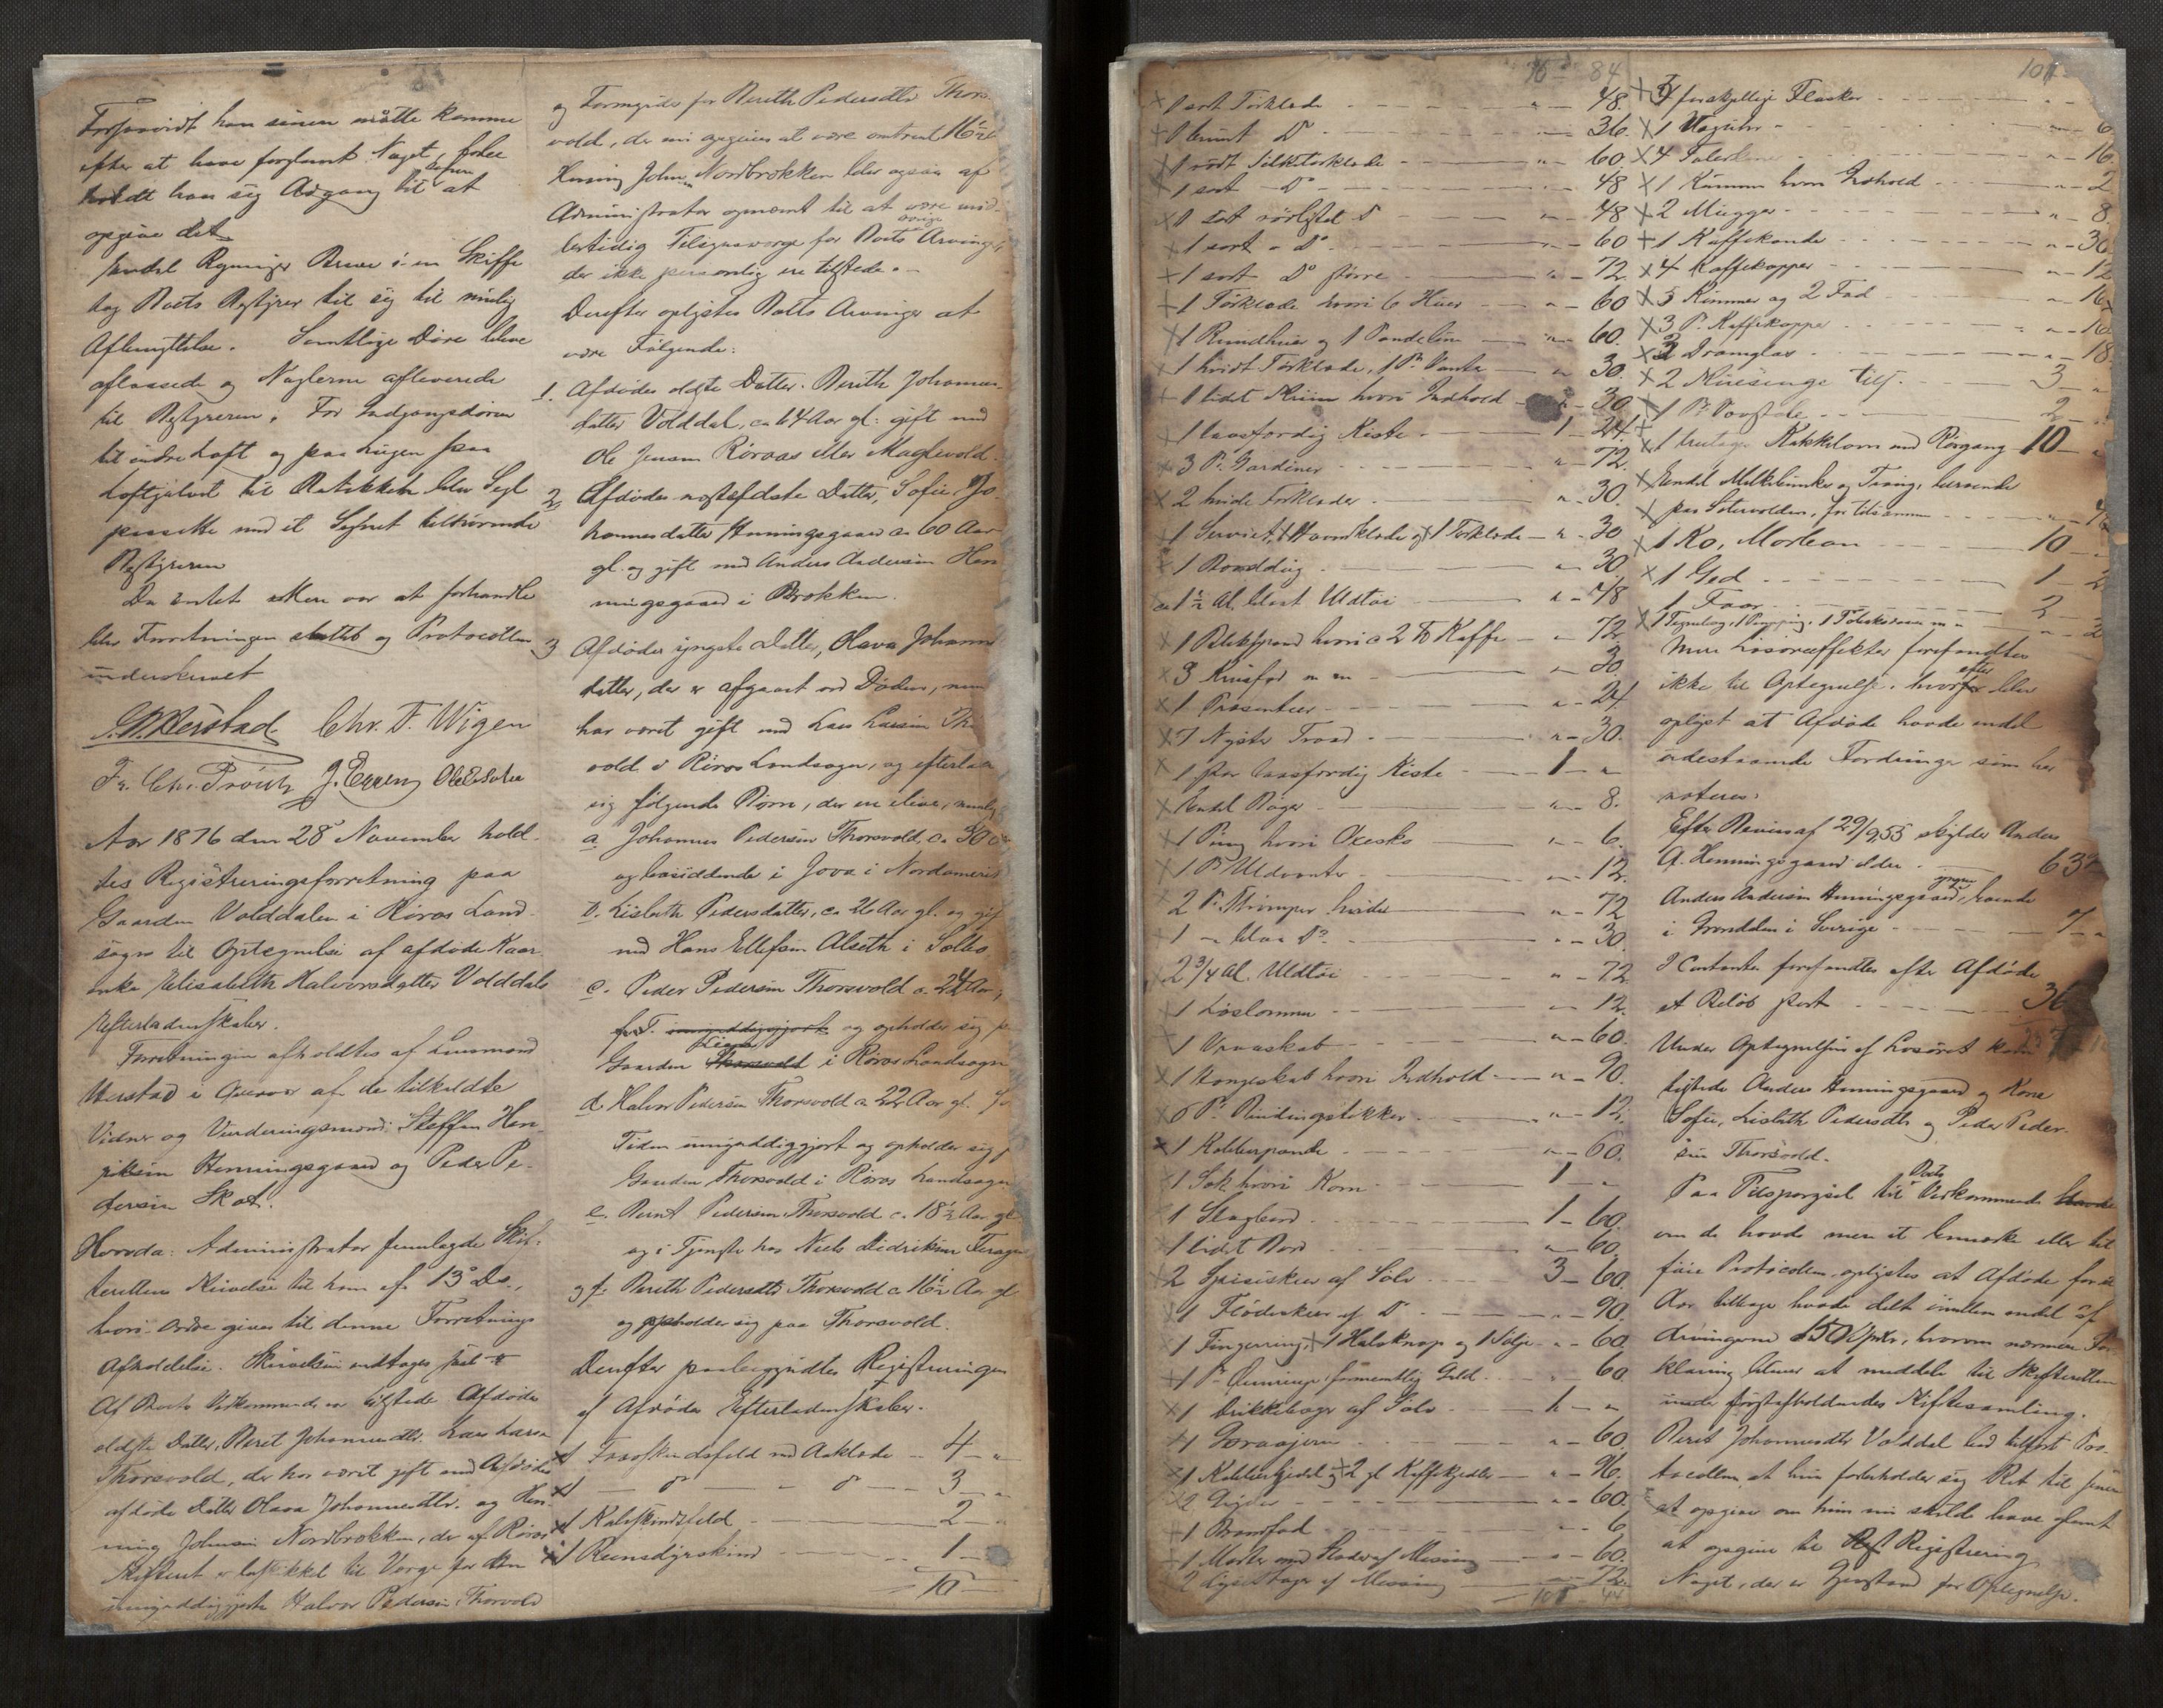 Forsaavidt han senere måtte komme
efter at have forglemt Noget, forbe
holdt han sig Adgang til senere at
opgive det.
Endel Regninger Breve i en Skiffe
tog Boets Bestyrer til sig til mulig
Afbenyttelse. Samtlige Døre bleve
aflaasede og Nøglerne afleverede
til Bestyreren. For Indgangsdøren
til indre Loft og paa Lugen paa
Loftgulvet til blev Segl
paasatte med et Signet tilhørende
Bestyreren
Da intet Mere var at forhandle
blev Forretningen sluttet og Protocollen
underskrevet
Herstad Chr. F. Wigen
Fr. Chr. Prøsch J. Eggen
Aar 1876 den 28 November hold-
tes Registreringsforretning paa
Gaarden Volddalen i Røros Land-
sogn til Optegnelse af afdøde Kaar-
enke Elisabeth Halvorsdatter Volddals
Efterladenskaber.
Forretningen afholdtes af Lensmand
Herstad i Overvær af de tilkaldte
Vidner og Vurderingsmænd: Steffen Hen-
riksen Henningsgaard og Peder Pe-
dersen Skot.
Hvorda: Administrator fremlagde Skif-
terettens Skrivelse til ham af 13 Ds.,
hvori Ordre gives til denne Forretnings
Afholdelse. Skrivelsen indtages
Af Boets Vedkommende var tilstede Afdødes
ældste Datter, Beret Johannesdtr. Lars Larsen
Thorsvold, der har været gift med Afdødes
afdøde Datter Olava Johannesdtr. og Hen-
ning Johnsen Nordbrokken, der af Røros
Skifteret er beskikket til Værge for den
umyndiggjorte Halvor Pedersen Thorsvold
og Formynder for Bereth Pedersdtr Thors-
vold, der nu opgives at være omtrent 16½
Henning Johnsen Nordbrokken blev ogsaa af
Administrator opnævnt til at være mid-
lertidig Tilsynsværge for Boets øvrige Arvinger,
der ikke personlig ere tilstede.
Derefter oplystes Boets Arvinger at
være Følgende:
1. Afdødes ældste Datter. Bereth Johannes-
datter Volddal, ca 64 Aar gl. gift med
Ole Jensen Røraas eller Maglevold.
2. Afdødes næstældste Datter, Sofie Jo-
hannesdatter Henningsgaard ca 60 Aar
gl. og gift med Anders Andersen Hen
ningsgaard i Brokken.
3 Afdødes yngste Datter, Olava Johannes
datter, der er afgaaet ved Døden, men
har været gift med Lars Larsen Thors
vold i Røros Landsogn, og efterlader
sig følgende Børn, der ere ilive, nemlig
a. Johannes Pedersen Thorsvold, ca 30 Aar
og bosiddende i Jova i Nordamerika
b. Lisbeth Pedersdatter, ca 26 Aar gl. og gift
med Hans Ellefsen Alseth i Selbo
c. Peder Pedersen Thorsvold ca 24 Aar,
for T. umyndiggjort og opholder sig p
Gaarden Thorsvold i Røros Landsogn
d. Halvor Pedersen Thorsvold ca 22 Aar gl. for
Tiden umyndiggjort og opholder sig p
Gaarden Thorsvold i Røros Landsogn
e. Bernt Pedersen Thorsvold ca 18½ Aar gl
og i Tjeneste hos Niels Didriksen Feragen
og f. Bereth Pedersdtr Thorsvold ca 16½ Aar gl
og opholder sig paa Thorsvold.
Derefter paabegyndtes Registreringen
af Afdødes Efterladenskaber.
1 Faareskindsfeld med Aaklæde - 4 - "
1 - do - do - 3 - "
1 Kalveskindsfeld - 2 - "
1 Reensdyrskind - 1 -
10 -
10 - 84
1 sort Tørklæde - " - 48.
1 brunt Do - " - 36.
1 rødt Silketørklæde - " - 60.
1 sort - Do - " - 48
1 sort Do - " - 48
1 sort - Do - " - 60
1 sort Do større - " - 72
1 Tørklæde hvori 6 Huer - " - 60
1 og 1 Pandelin - " - 60.
1 hvidt Tørklæde, 1 Pr. Vanter - " - 30.
1 lidet Skrin hvori Indhold - " - 30.
1 laasfærdig Kiste - 1 - 24
3 Pr. Gardiner - " - 72.
2 hvide Forklæder - " - 30.
1 Serviet, 1 Haandklæde og 1 Tørklæde - " - 30
1 - " - 30
ca 1½ Al. Uldtøi - " - 48
1 hvori ca 2 lb Kaffe - " - 72.
3 - " - 30
1 Præsenteer - " - 24.
7 Nøster Traad - " - 30.
1 stor laasfærdig Kiste - 1 - "
Endel Bøger - " - 8.
1 Pung hvori - " - 6.
1 Pr Uldvanter - " - 12.
2 Pr. Strømper hvide - " - 72
1 - blaa Do. - " - 30.
2¾ Al. Uldtøi - " - 72
1 Løslomme - " - 12.
1 Vraaskab - " - 60.
1 Hængeskab hvori Indhold - " - 90.
6 Pr. Bindingstikker - " - 12.
1 Kobberpande - " - 60.
1 Sæk hvori Korn - 1 - "
1 Slagbord - 1 - 60.
1 lidet Bord - " - 60.
2 Spiseskeer af Sølv - 3 - 60
1 Flødeskee af Do - " - 90.
1 Fingerring, 1 Halsknap og 1 Sølje - " - 60.
1 Pr Ørenringe formentlig Guld - " - 60
1 Drikkebæger af Sølv
1 - " - 60
1 Kobberkjedel og 2 gl Kaffekjedler - " - 96.
2 Gryder - " - 60.
1 Brændfad - " - 6.
1 Morter med Støder af Messing - " - 60.
2 Lysestager af Messing - " - 72.
101 - 44
101
forskjellige Flasker
1 Vægtuhr - 6
4 Talerkener - " - 16.
1 Kumme hvori Indhold - " - 2
2 Mugger - " - 8.
1 Kaffekande - " - 30
4 Kaffekopper - " - 12
5 Kummer og 2 Fad - " - 16
3 Pr. Kaffekopper - " - 16
2 Dramglas - " - 18
2 tils. - 3 - "
1 Pr. - 2
1 Kakkelovn med Rørgang 10 -
Endel Melkebunker og Tiner, beroende
paa Sætervolden, for tilsammen
1 Ko, Morlean - 10 -
1 Ged - 1 - 2
1 Faar - 2
Mere Løsøreeffekter forefandtes
ikke til Optegnelse, hvorefter blev
oplyst at Afdøde havde endel
udestaaende Fordringer som her
noteres:
Efter Bevis af 29/9 55 skylder Anders
A. Henningsgaard ældre - 63
Anders Andersen Henningsgaard yngre, boende
i Grøndalen i Sverige - 7 -
I Contanter forefandtes efter Afdøde
et Beløb stort - 36
Under Optegnelsen af Løsøret kom
tilstede Anders Henningsgaard og Kone
Sofie, Lisbeth Pedersdtr og Peder Peder-
sen Thorsvold.
Paa Tilspørgsel til Boets Vedkommende
om de havde mere at bemærke eller til
føie Protocollen, oplystes at Afdøde for et
Aar tilbage havde delt imellem endel af
Arvingerne 150 Spdlr., hvorom nærmere For-
klaring bliver at meddele til Skifteretten
under førstafholdendes Skiftesamling.
Beret Johannesdtr Volddal lod tilført Pro-
tocollen, at hun forbeholder sig Ret til senere
at opgive om hun nu skulde have glemt
at opgive til Registrering
Noget, der er Gjenstand for Optegnelse.